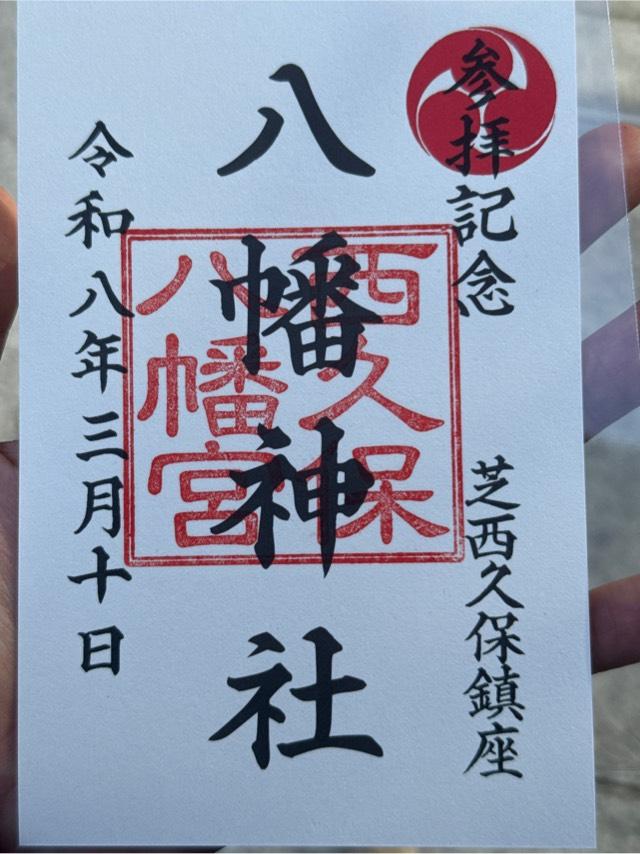 参拝記念
芝西久保鎮座
八幡神社
西久保
八幡宮
令和八年三月十日